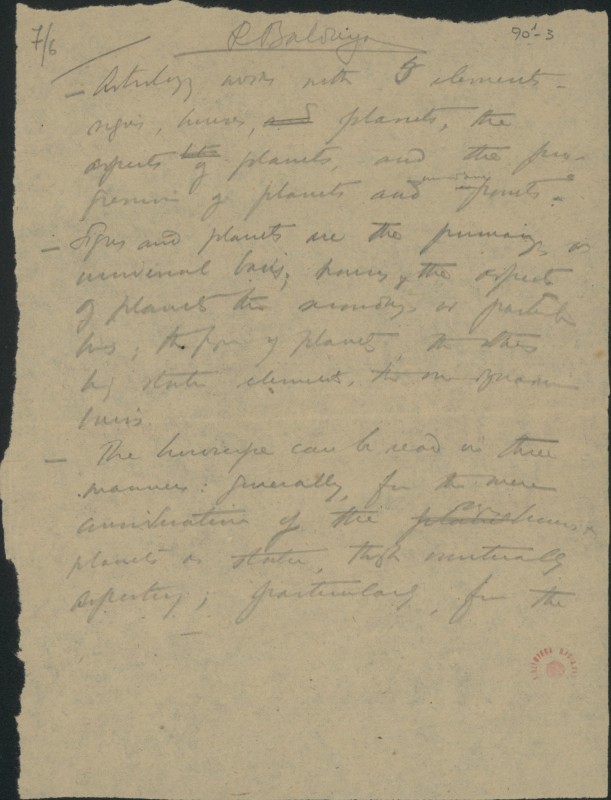 7/6
R Baldaya
90¹-3
— Astrology works with 5 elements —
signs, houses, and planets, the
aspects of planets, and the pro-
gression of planets and points.
— Signs and planets are the primary, or
universal basis; houses, the aspects
of planets the secondary or particular
basis; the of planets the
state element, the or dynamic
basis.
— The horoscope can be read in three
manners: generally, for the mere
consideration of the houses &
planets as static, though mutually
aspecting; particularly, for the